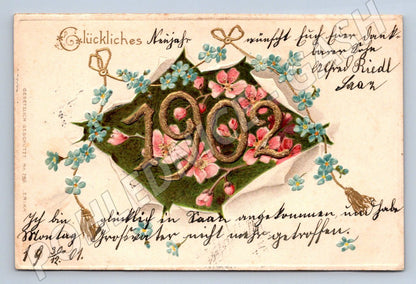 Glückliches Neujahr wünscht Euch Euer dank-
barer Sohn
Alfred Riedl
Saaz
1902
Ich bin glücklich in Saaz angekommen und habe
Montag Grosvater nicht mehr getroffen.
19 30/12. 01.
GESETZLICH GESCHÜTZT